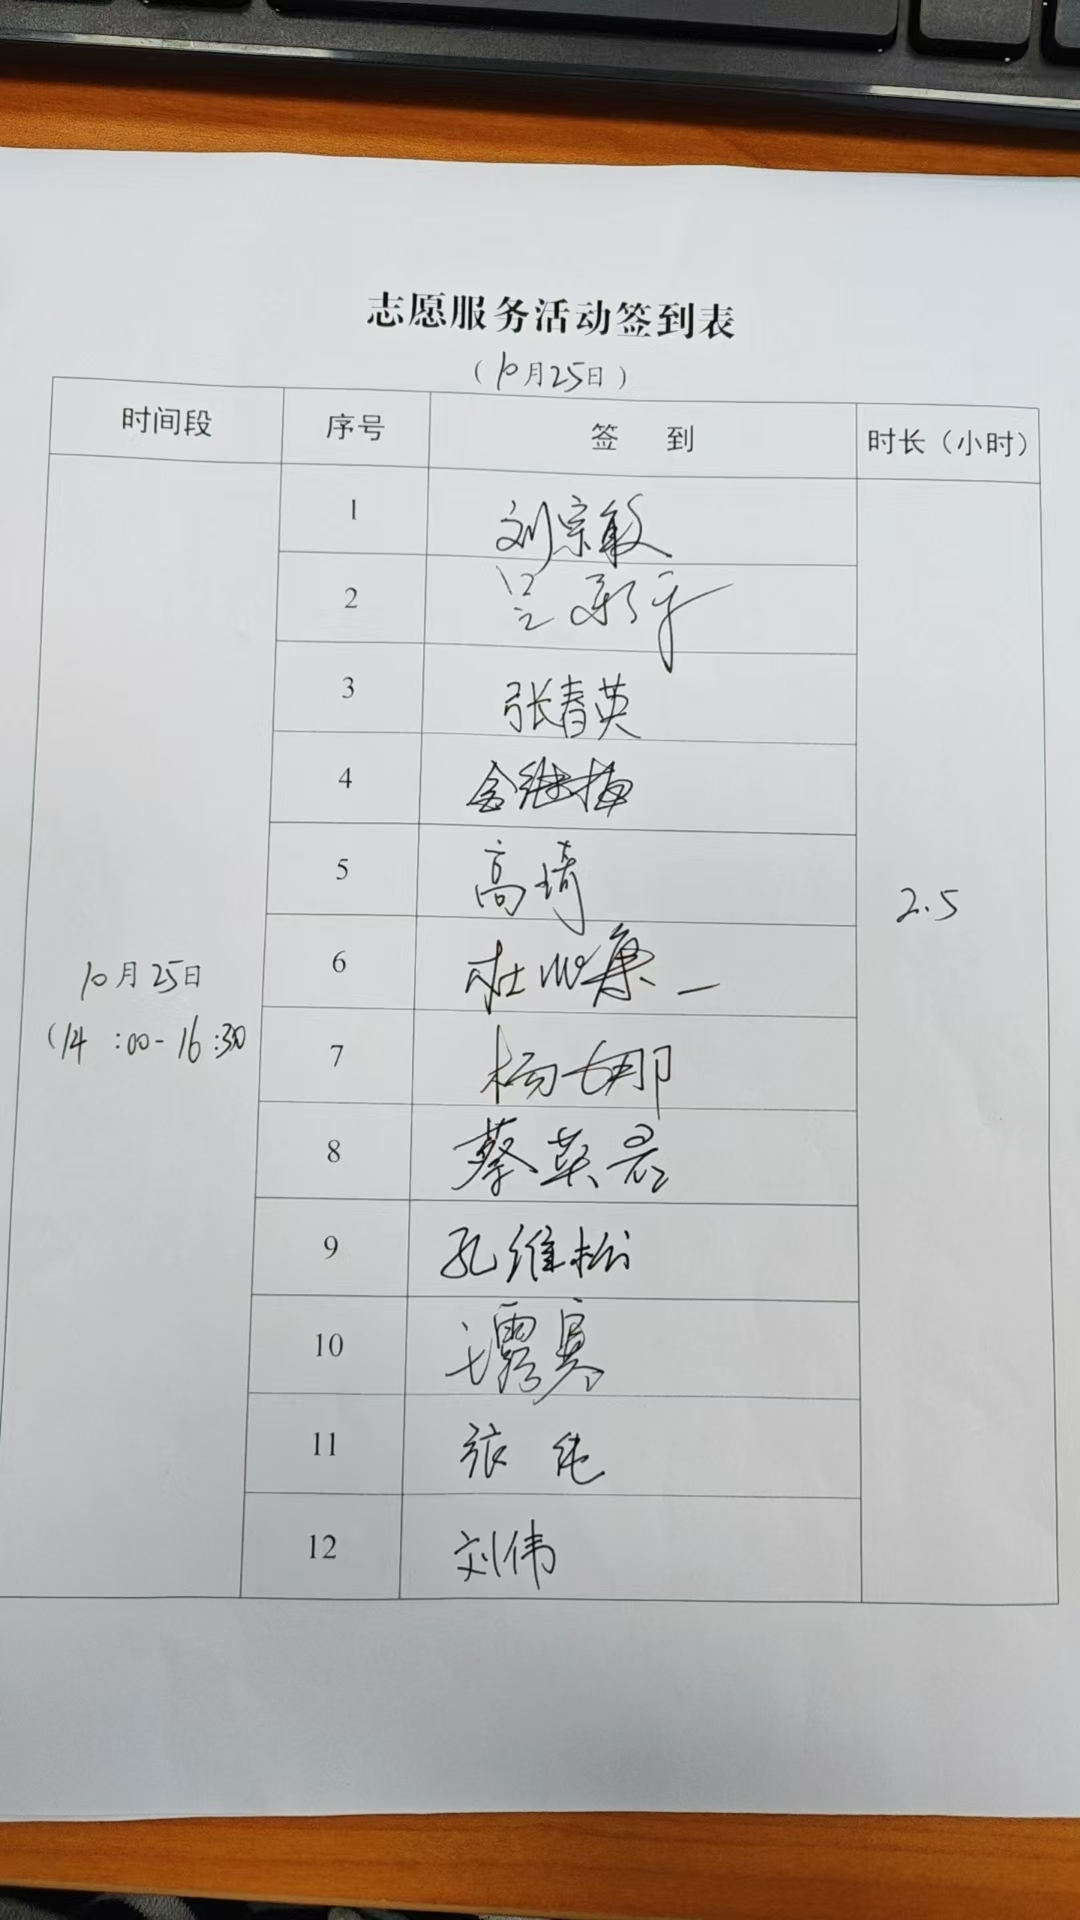 志愿服务活动签到表
（10月25日）
时间段 序号 签 到 时长（小时）
1 刘宗敏
2 吴新平
3 张春英
4 金继梅
5 高琦
6 杜心集
7 杨七那
8 蔡英君
9 孔维松
10
11 张纯
12 刘伟
10月25日
（14:00-16:30
2.5